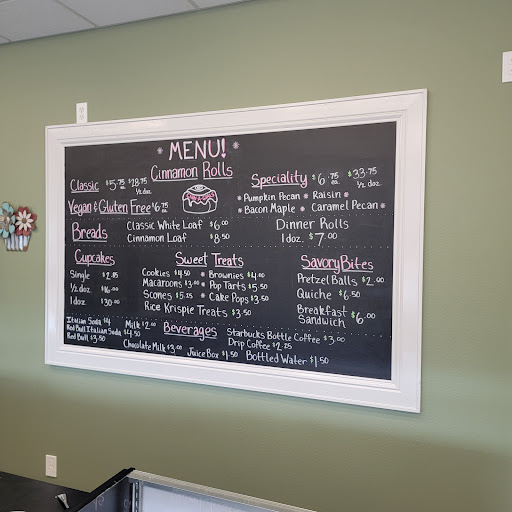 * MENU! *
Cinnamon Rolls
Classic $5.75 ea. $28.75 ½ doz.
Vegan & Gluten Free $6.75 ea.
Speciality $6.75 ea. $33.75 ½ doz.
* Pumpkin Pecan * Raisin *
* Bacon Maple * Caramel Pecan *
Breads
Classic White Loaf $6.00
Cinnamon Loaf $8.50
Dinner Rolls
1 doz. $7.00
Cupcakes
Single $2.85
½ doz. $16.00
1 doz. $30.00
Sweet Treats
Cookies $4.50 * Brownies $4.00
Macaroons $3.00 * Pop Tarts $5.50
Scones $5.25 * Cake Pops $3.50
Rice Krispie Treats $3.50
Savory Bites
Pretzel Balls $2.00
Quiche $6.50
Breakfast
Sandwich $6.00
Beverages
Italian Soda $4
Red Bull Italian Soda $4.50
Red Bull $3.50
Milk $2.00
Chocolate Milk $3.00
Juice Box $1.50
Starbucks Bottle Coffee $3.00
Drip Coffee $2.25
Bottled Water $1.50